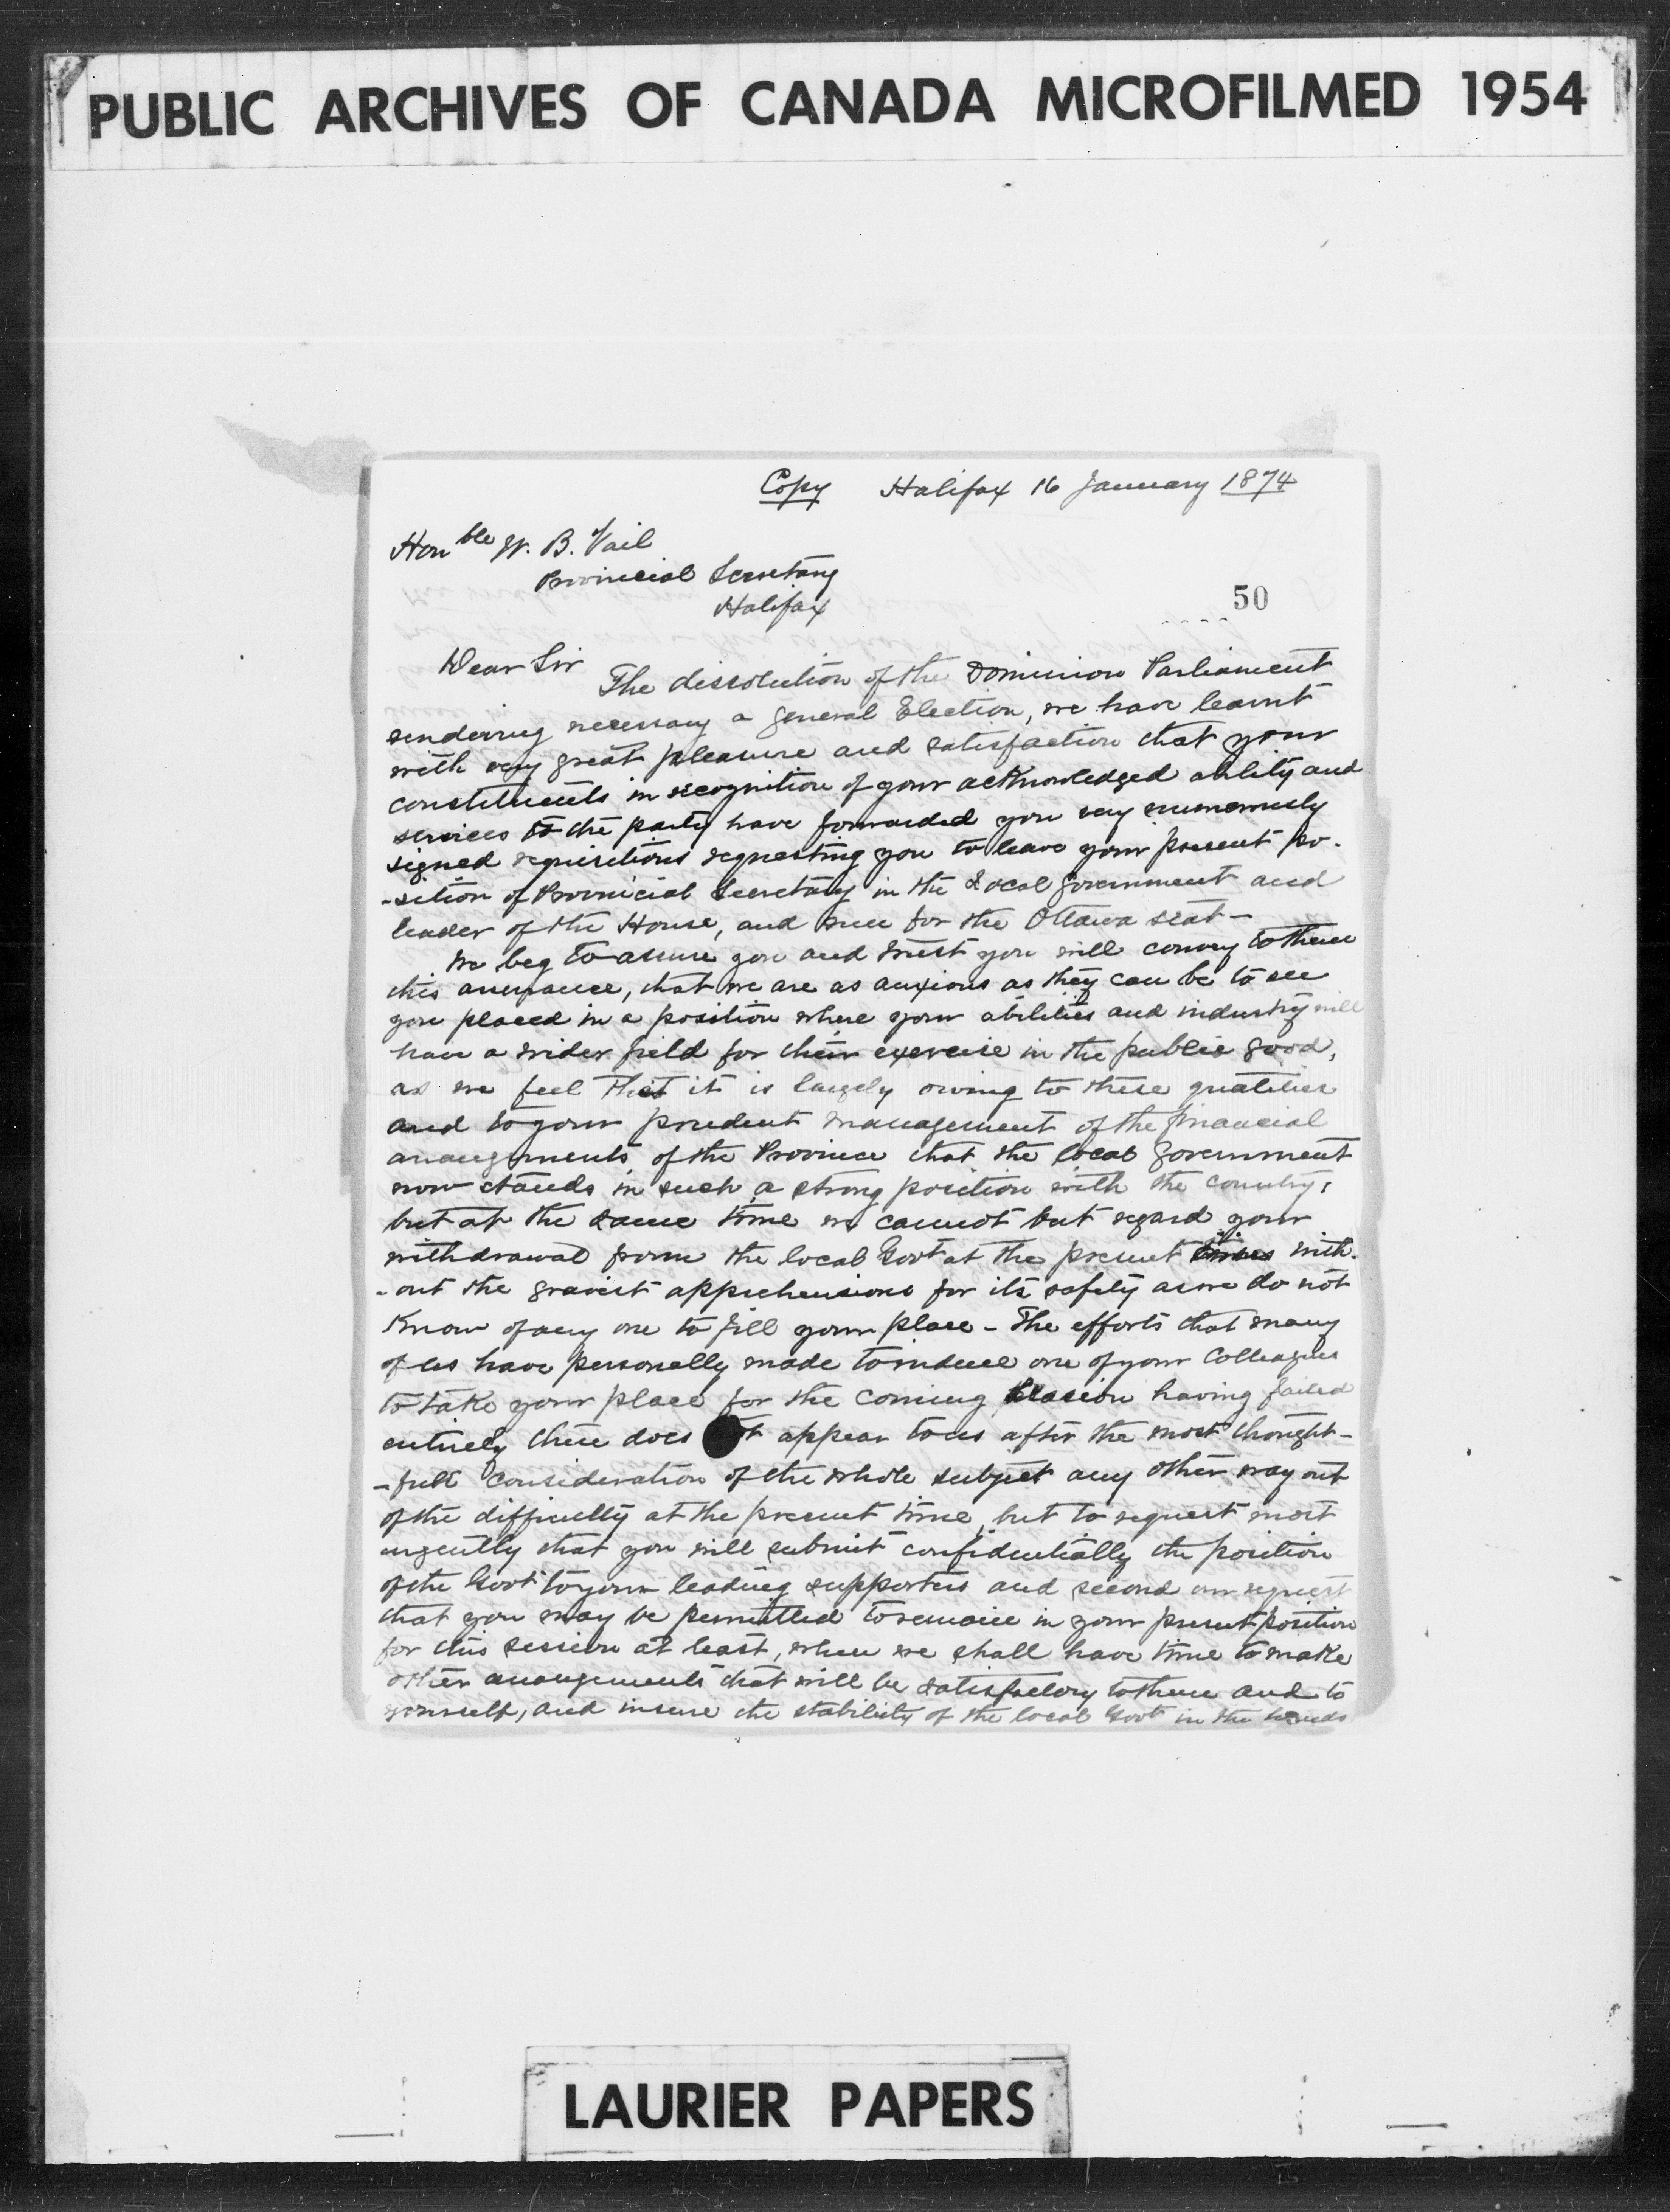 PUBLIC ARCHIVES OF CANADA MICROFILMED 1954
Copy Halifax 16 January 1874
Honble W. B. Vail
Provincial Secretary
Halifax
50
Dear Sir
The dissolution of the Dominion Parliament
rendering necessary a general Election, we have learnt
with very great pleasure and satisfaction that your
constituents in recognition of your acknowledged ability and
services to the party have forwarded you very numerously
signed requisitions requesting you to leave your present po-
-sition of Provincial Secretary in the Local government and
leader of the House, and run for the Ottawa seat -
We beg to assure you and trust you will convey to them
this assurance, that we are as anxious as they can be to see
you placed in a position where your abilities and industry will
have a wider field for their exercise in the public good,
as we feel that it is largely owing to these qualities
and to your prudent management of the financial
arrangements of the Province that the local Government
now stands in such a strong position with the country,
but at the same time we cannot but regard your
withdrawal from the local Govt at the present with-
-out the gravest apprehensions for its safety as we do not
know of any one to fill your place - The efforts that many
of us have personally made to induce one of your Colleagues
to take your place for the coming session having failed
entirely there does t appear to us after the most thought-
-full consideration of the whole subject any other way out
of the difficulty at the present time, but to request most
urgently that you will submit confidentially the position
of the Govt to your leading supporters and second our request
that you may be permitted to remain in your present position
for this session at least, when we shall have time to make
other arrangements that will be satisfactory to them and to
yourself, and insure the stability of the local Govt in the hands
LAURIER PAPERS